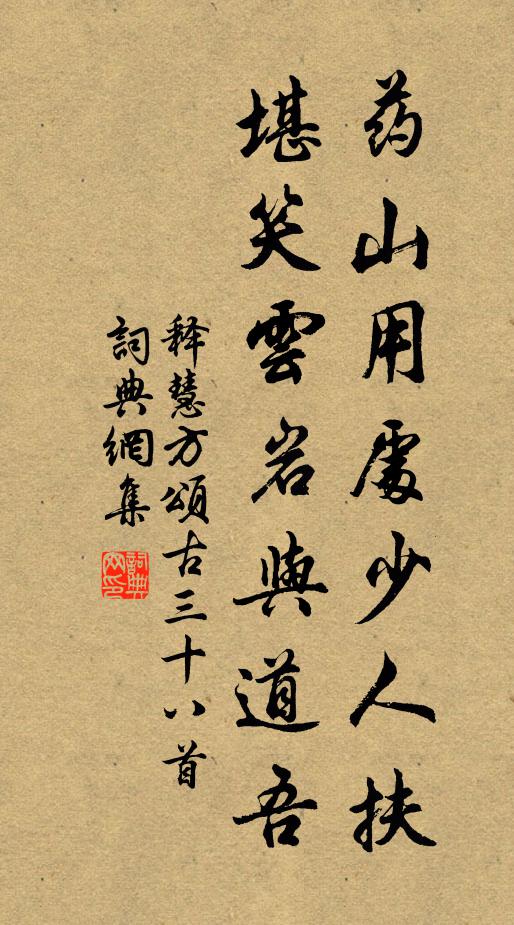 药山用處少人扶
堪笑雲岩與道吾
释慧方頌古三十八首
詞典網集
詞典
网印